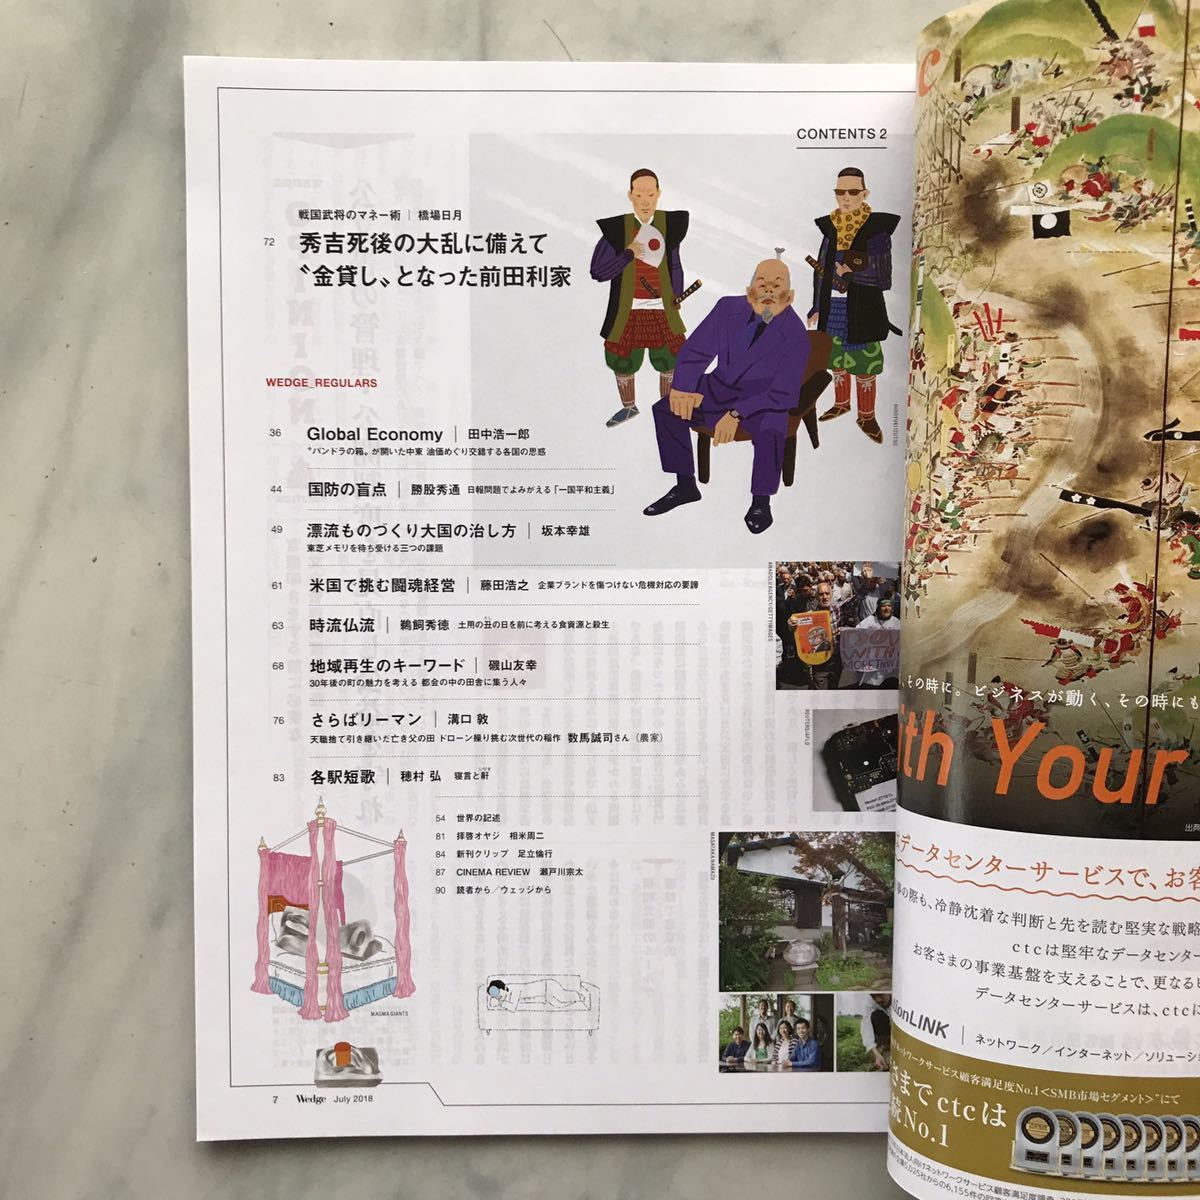 CONTENTS 2
戦国武将のマネー術 | 橋場日月
72 秀吉死後の大乱に備えて
〝金貸し〟となった前田利家
HIROYUKI IZUTSU
WEDGE_REGULARS
36 Global Economy | 田中浩一郎
〝パンドラの箱〟が開いた中東 油価めぐり交錯する各国の思惑
44 国防の盲点 | 勝股秀通 日報問題でよみがえる「一国平和主義」
49 漂流ものづくり大国の治し方 | 坂本幸雄
東芝メモリを待ち受ける三つの課題
61 米国で挑む闘魂経営 | 藤田浩之 企業ブランドを傷つけない危機対応の要諦
63 時流仏流 | 鵜飼秀徳 土用の丑の日を前に考える食資源と殺生
68 地域再生のキーワード | 磯山友幸
30年後の町の魅力を考える 都会の中の田舎に集う人々
76 さらばリーマン | 溝口 敦
天職捨て引き継いだ亡き父の田 ドローン操り挑む次世代の稲作 数馬誠司さん（農家）
83 各駅短歌 | 穂村 弘 寝言と鼾
54 世界の記述
81 拝啓オヤジ 相米周二
84 新刊クリップ 足立倫行
87 CINEMA REVIEW 瀬戸川宗太
90 読者から／ウェッジから
ANADOLU AGENCY/GETTYIMAGES
DOWN WITH
MORE THAN
REUTERS/AFLO
MASATAKA NAMAZU
MAGMA GIANTS
7 Wedge July 2018
、その時に。ビジネスが動く、その時にも
ith Your
データセンターサービスで、お客
の際も、冷静沈着な判断と先を読む堅実な戦略
ctcは堅牢なデータセンター
お客さまの事業基盤を支えることで、更なるビ
データセンターサービスは、ctcに
ionLINK | ネットワーク／インターネット／ソリューショ
ネットワークサービス顧客満足度No.1<SMB市場セグメント>にて
さまでctcは
続No.1